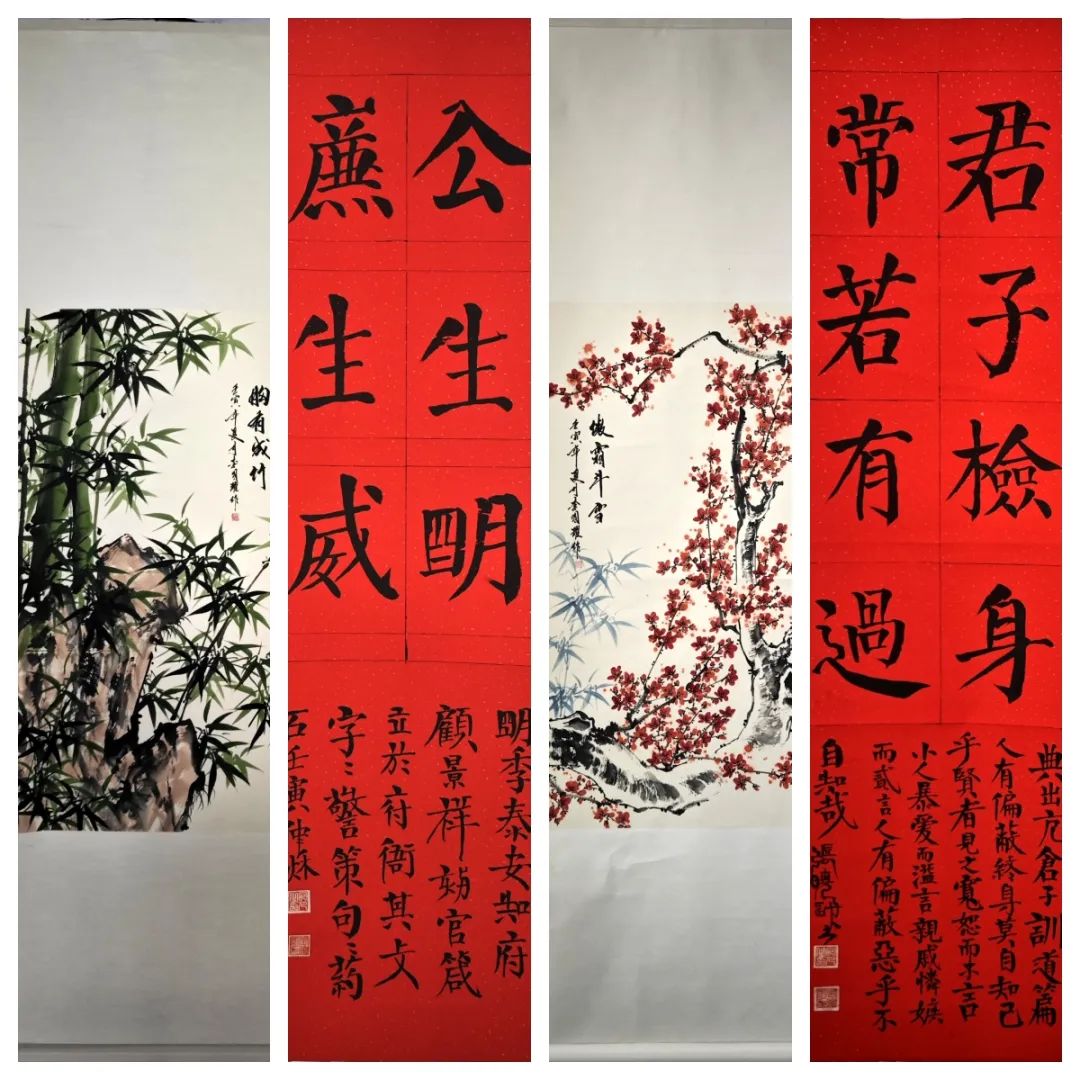 胸有成竹
壬寅年夏月
公生明
廉生威
明季泰安知府
顧景祥勒官箴
立於府衙其文
字〻警策句〻药
石壬寅仲秋
傲霜斗雪
壬寅年夏月
君子檢身
常若有過
典出亢倉子訓道篇
人有偏蔽終身莫自知己
乎賢者見之寬恕而不言
小人暴愛而溢言親戚憐嫉
而貳言人有偏蔽惡乎不
自知哉